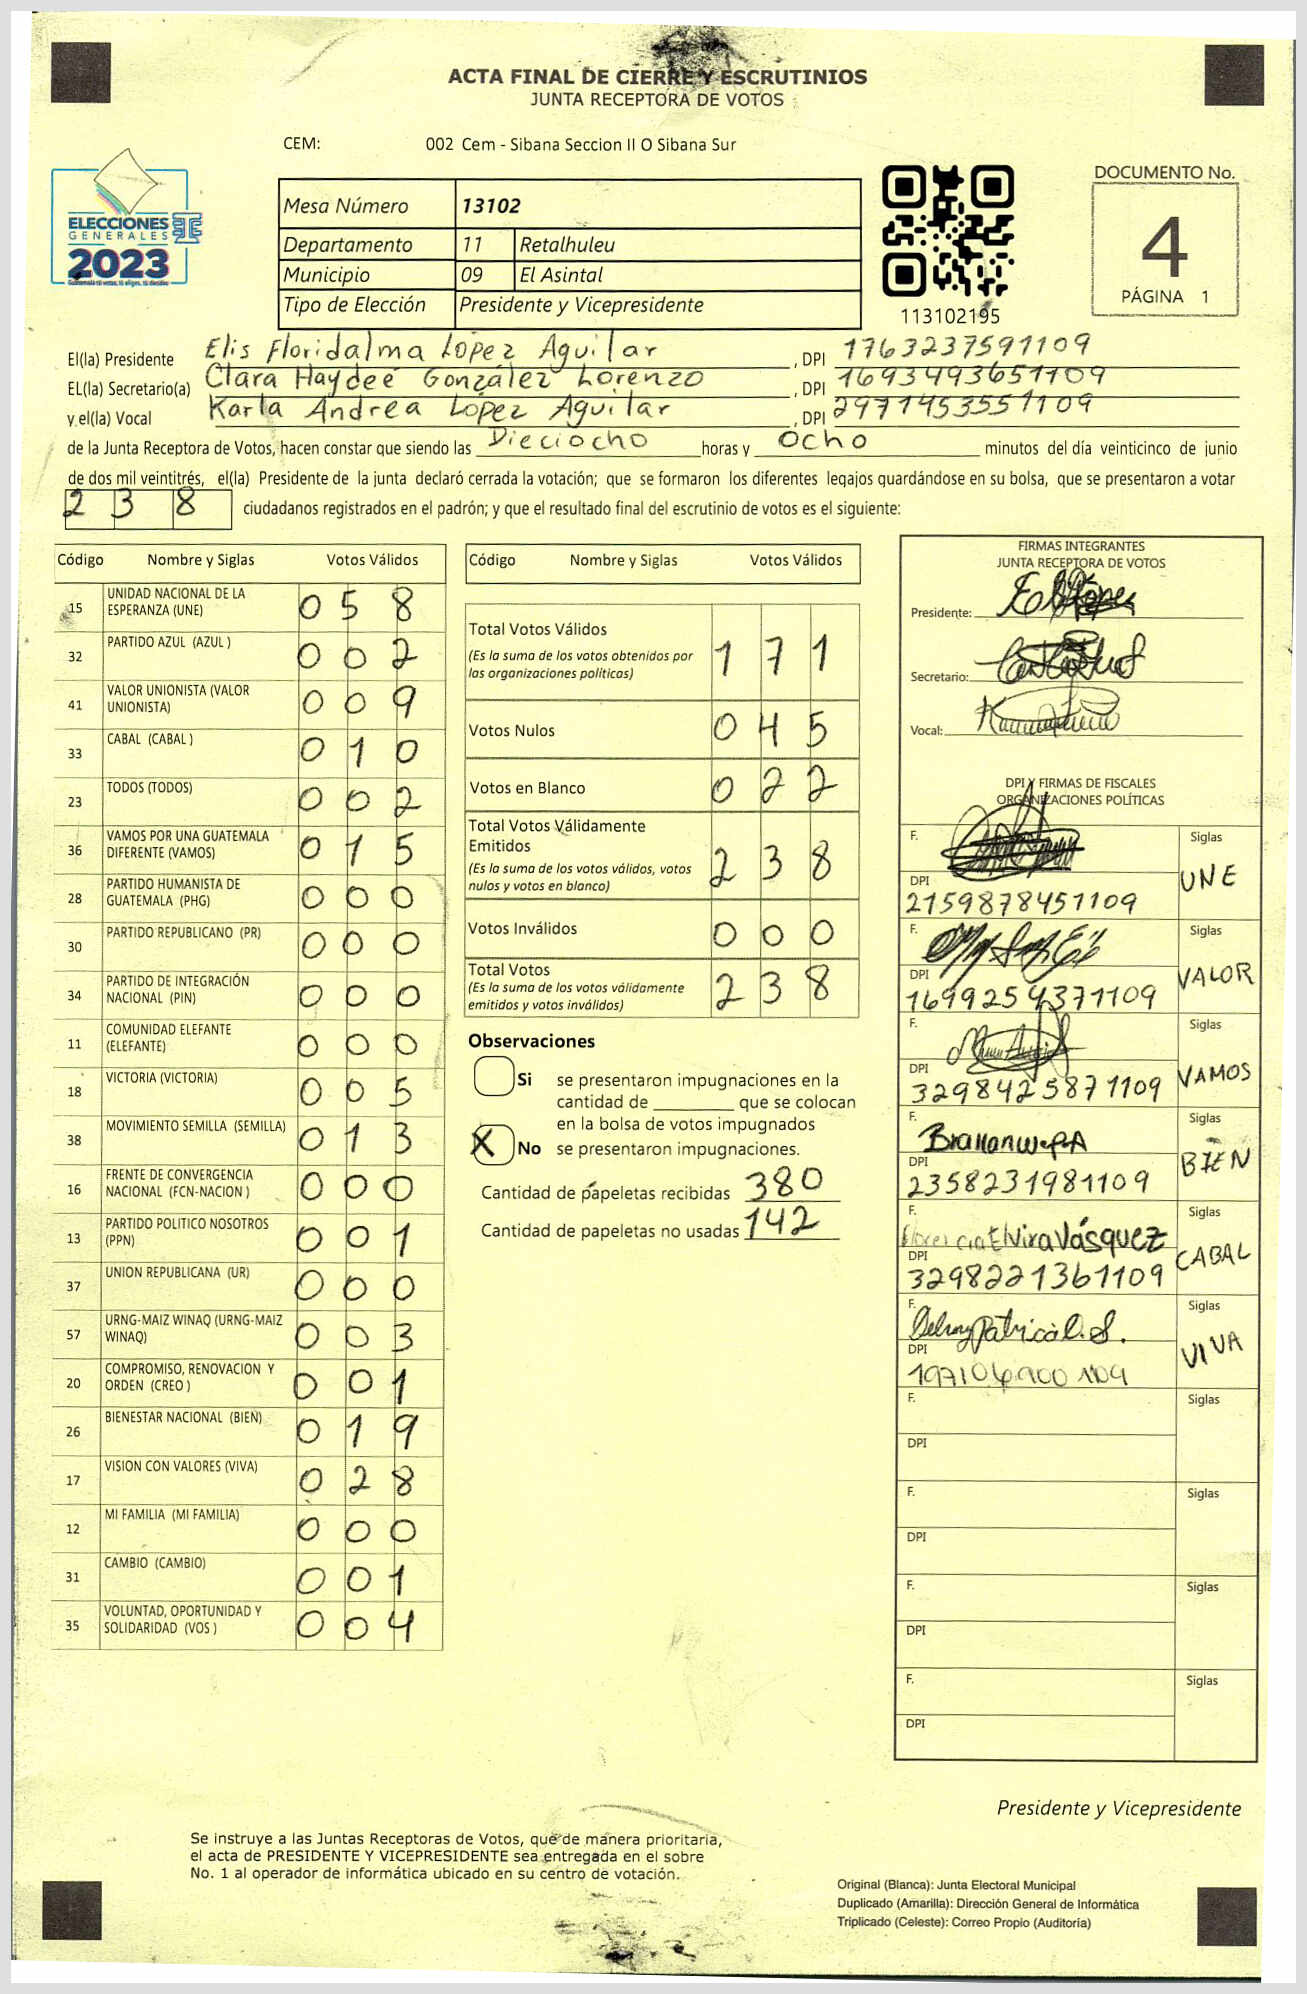 ACTA FINAL DE CIERRE Y ESCRUTINIOS
JUNTA RECEPTORA DE VOTOS
CEM: 002 Cem - Sibana Seccion II O Sibana Sur
ELECCIONES
GENERALES
2023
Mesa Número 13102
Departamento 11 Retalhuleu
Municipio 09 El Asintal
Tipo de Elección Presidente y Vicepresidente
113102195
DOCUMENTO No.
4
PÁGINA 1
El(la) Presidente Elis Floridalma López Aguilar , DPI 1763237591109
EL(la) Secretario(a) Clara Haydeé González Lorenzo , DPI 1693493651109
y el(la) Vocal Karla Andrea López Aguilar , DPI 2971453551109
de la Junta Receptora de Votos, hacen constar que siendo las Dieciocho horas y Ocho minutos del día veinticinco de junio
de dos mil veintitrés, el(la) Presidente de la junta declaró cerrada la votación; que se formaron los diferentes legajos guardándose en su bolsa, que se presentaron a votar
2 3 8 ciudadanos registrados en el padrón; y que el resultado final del escrutinio de votos es el siguiente:
Código Nombre y Siglas Votos Válidos
15 UNIDAD NACIONAL DE LA
ESPERANZA (UNE) 0 5 8
32 PARTIDO AZUL (AZUL ) 0 0 2
41 VALOR UNIONISTA (VALOR
UNIONISTA) 0 0 9
33 CABAL (CABAL ) 0 1 0
23 TODOS (TODOS) 0 0 2
36 VAMOS POR UNA GUATEMALA
DIFERENTE (VAMOS) 0 1 5
28 PARTIDO HUMANISTA DE
GUATEMALA (PHG) 0 0 0
30 PARTIDO REPUBLICANO (PR) 0 0 0
34 PARTIDO DE INTEGRACIÓN
NACIONAL (PIN) 0 0 0
11 COMUNIDAD ELEFANTE
(ELEFANTE) 0 0 0
18 VICTORIA (VICTORIA) 0 0 5
38 MOVIMIENTO SEMILLA (SEMILLA) 0 1 3
16 FRENTE DE CONVERGENCIA
NACIONAL (FCN-NACION ) 0 0 0
13 PARTIDO POLITICO NOSOTROS
(PPN) 0 0 1
37 UNION REPUBLICANA (UR) 0 0 0
57 URNG-MAIZ WINAQ (URNG-MAIZ
WINAQ) 0 0 3
20 COMPROMISO, RENOVACION Y
ORDEN (CREO ) 0 0 1
26 BIENESTAR NACIONAL (BIEN) 0 1 9
17 VISION CON VALORES (VIVA) 0 2 8
12 MI FAMILIA (MI FAMILIA) 0 0 0
31 CAMBIO (CAMBIO) 0 0 1
35 VOLUNTAD, OPORTUNIDAD Y
SOLIDARIDAD (VOS ) 0 0 4
Código Nombre y Siglas Votos Válidos
Total Votos Válidos
(Es la suma de los votos obtenidos por
las organizaciones políticas) 1 7 1
Votos Nulos 0 4 5
Votos en Blanco 0 2 2
Total Votos Válidamente
Emitidos
(Es la suma de los votos válidos, votos
nulos y votos en blanco) 2 3 8
Votos Inválidos 0 0 0
Total Votos
(Es la suma de los votos válidamente
emitidos y votos inválidos) 2 3 8
Observaciones
Si se presentaron impugnaciones en la
cantidad de ________ que se colocan
en la bolsa de votos impugnados
X No se presentaron impugnaciones.
Cantidad de papeletas recibidas 380
Cantidad de papeletas no usadas 142
FIRMAS INTEGRANTES
JUNTA RECEPTORA DE VOTOS
Presidente:
Secretario:
Vocal:
DPI Y FIRMAS DE FISCALES
ORGANIZACIONES POLÍTICAS
F. Siglas
UNE
DPI
2159878451109
F. Siglas
VALOR
DPI
1699254371109
F. Siglas
VAMOS
DPI
3298425871109
F. Siglas
BIEN
DPI
2358231981109
F. Elvira Vásquez Siglas
CABAL
DPI
3298221361109
F. Siglas
VIVA
DPI
F. Siglas
DPI
F. Siglas
DPI
F. Siglas
DPI
F. Siglas
DPI
Presidente y Vicepresidente
Se instruye a las Juntas Receptoras de Votos, que de manera prioritaria,
el acta de PRESIDENTE Y VICEPRESIDENTE sea entregada en el sobre
No. 1 al operador de informática ubicado en su centro de votación.
Original (Blanca): Junta Electoral Municipal
Duplicado (Amarilla): Dirección General de Informática
Triplicado (Celeste): Correo Propio (Auditoría)